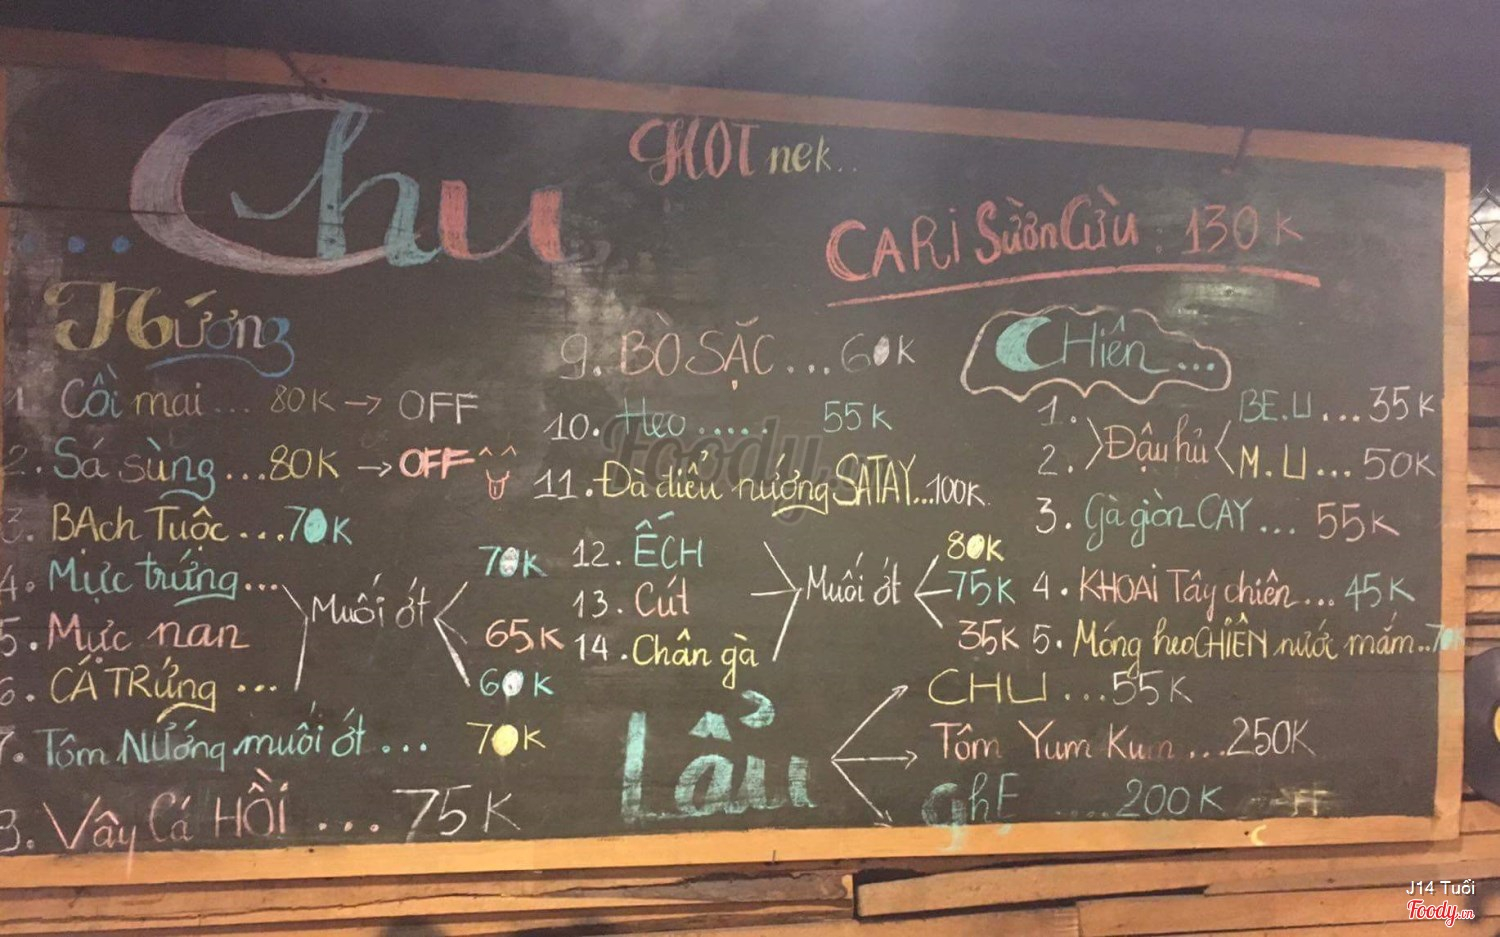 Chu
HOT nek..
CARI Sườn Cừu : 130K
Nướng
1. Cồi mai ... 80K → OFF
2. Sá sùng ... 80K → OFF
3. BAch Tuộc ... 70K
4. Mực trứng ...
5. Mực nan
6. CÁ TRứng ...
Muối ớt
70K
65K
60K
7. Tôm NƯớng muối ớt ... 70K
8. Vây Cá HỒi ... 75K
9. BÒ SẶC ... 60K
10. Heo ..... 55K
11. Đà điểu nượng SATAY...100K
12. ẾCH
13. Cút
14. Chân gà
Muối ớt
80K
75K
35K
CHiên ...
1.
2.
Đậu hủ
BE.U ... 35K
M.U ... 50K
3. Gà giòn CAY ... 55K
4. KHOAi Tây chiên ... 45K
5. Móng heo CHIÊN nước mắm .. 70K
Lẩu
CHU ... 55K
Tôm Yum Kum ... 250K
GhẸ ..... 200K
Foody
J14 Tuổi
Foody.vn